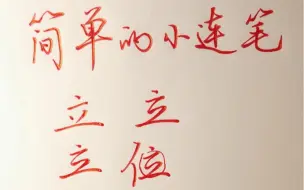 简单的小连笔
立 立
立 位